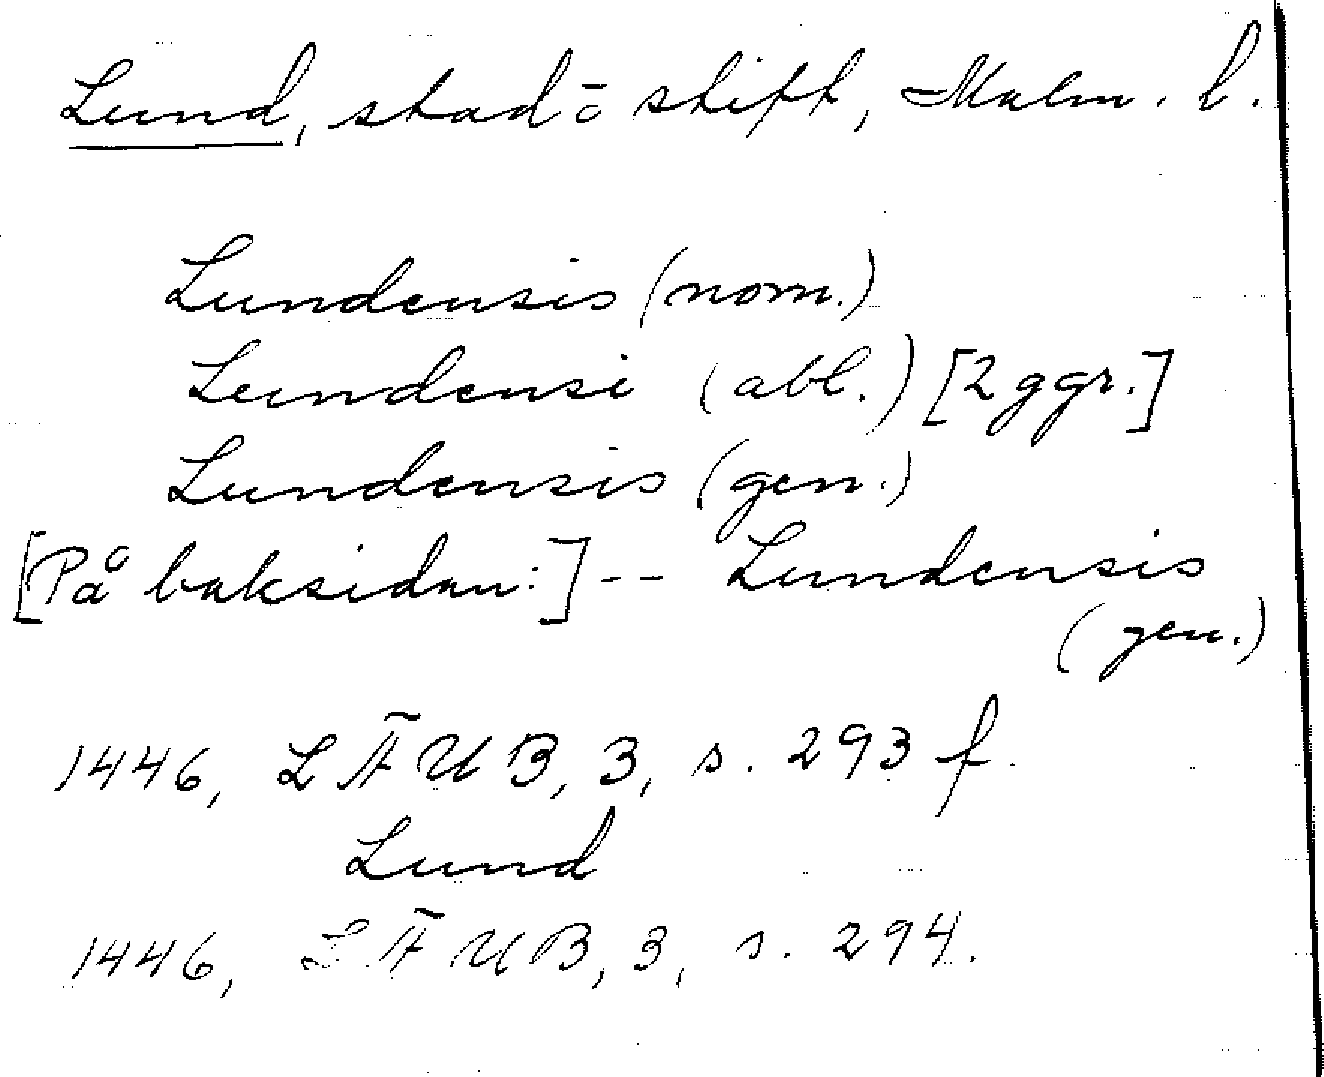 Lund, stad ō stift, Malm. l.
Lundensis (nom.)
Lundensi (abl.) [2 ggr.]
Lundensis (gen.)
[På baksidan:] -- Lundensis
(gen.)
1446, LÄUB, 3, s. 293 f.
Lund
1446, LÄUB, 3, s. 294.